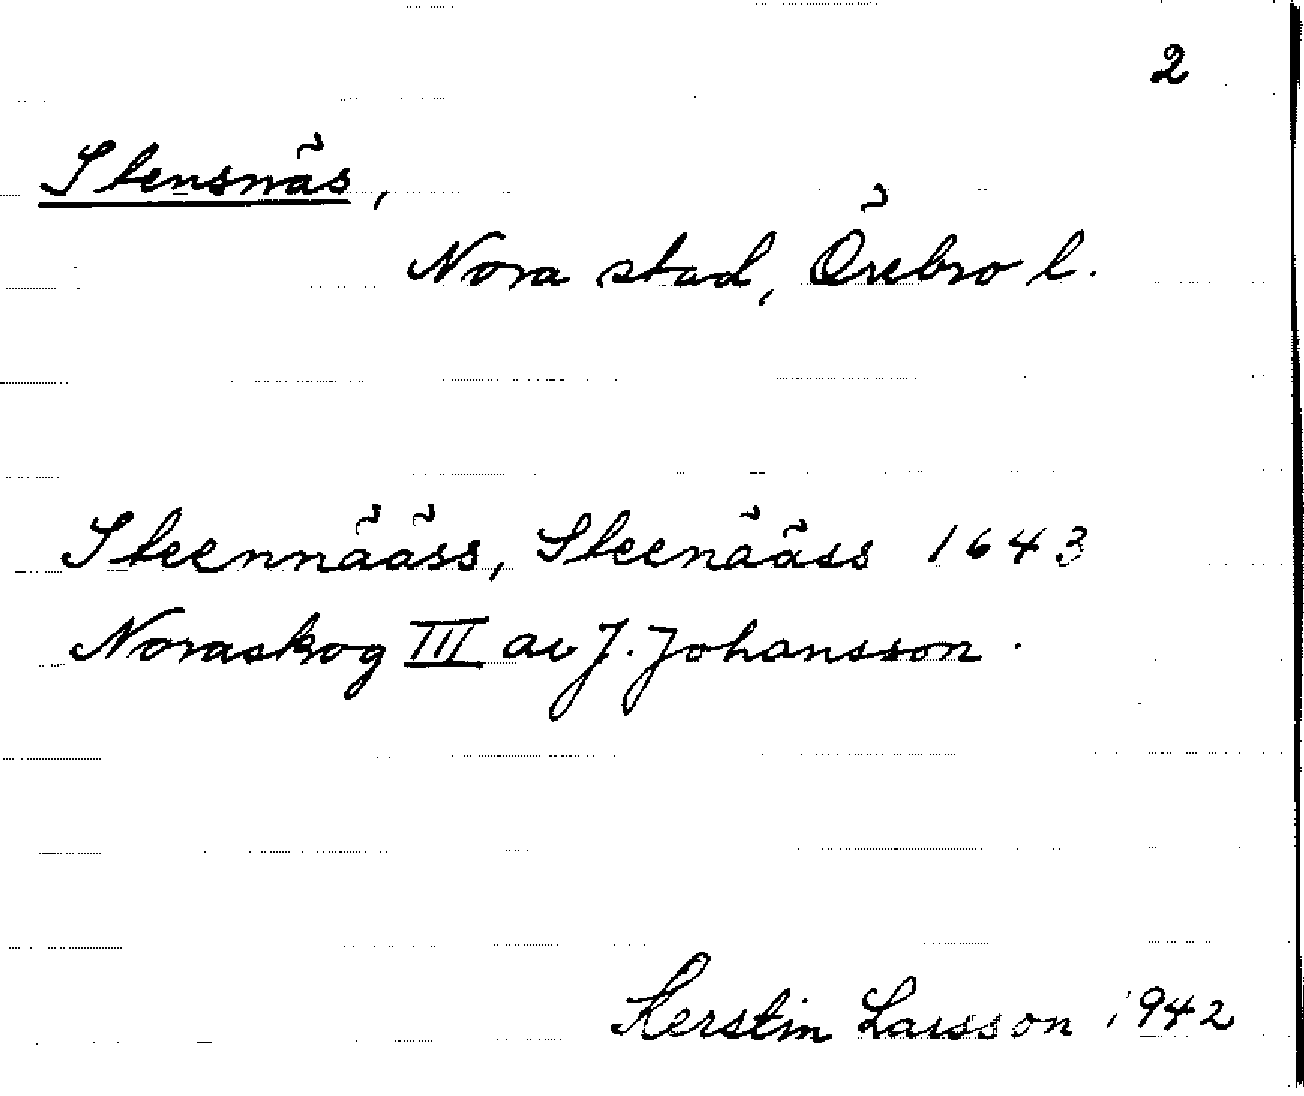 2
Stensnäs,
Nora stad, Örebro l.
Steennääss, Steenääss 1643
Noraskog III av J. Johansson.
Kerstin Larsson 1942